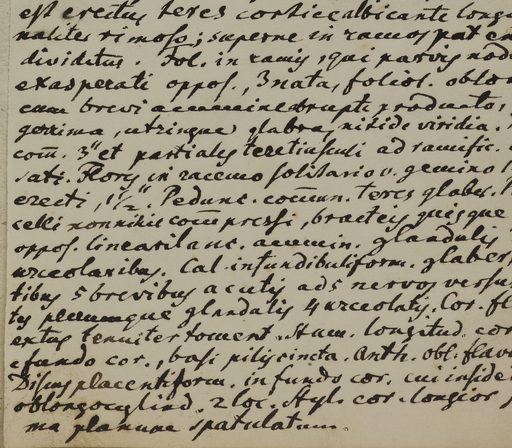 est erectus teres cortice albicante longi
naliter rimoso; superne in ramos paten
dividitus. Fol. in ramis, qui parvis nod
exasperati oppos., 3nata, foliol. oblon
cum brevi acumine abrupte productos,
gerrima, utrinque glabra, nitide viridia.
com̄. 3" et partiales teretiusculi ad ramific.
sati. Flores in racemo solitario v. gemino
erecti, 1½". Pedunc. com̄un. teres glaber.
celli nonnihil com̄pressi, bracteis quisque
oppos. lineari lanc. acumin. glandulis
urceolaribus. Cal. infundibuliform. glaber
tibus 5 brevibus acutis ad 5 nervos versu
tus plerumque glandulis 4 urceolatis. Cor. fl
extus leniter toment. Stam. longitud. cor
e fundo cor., basi pilis cincta. Anth. obl. flav
Discus placentiform. in fundo cor. cui inside
oblongo cylind. 2 loc. Styl. cor. longior
ma planum spatulatum.